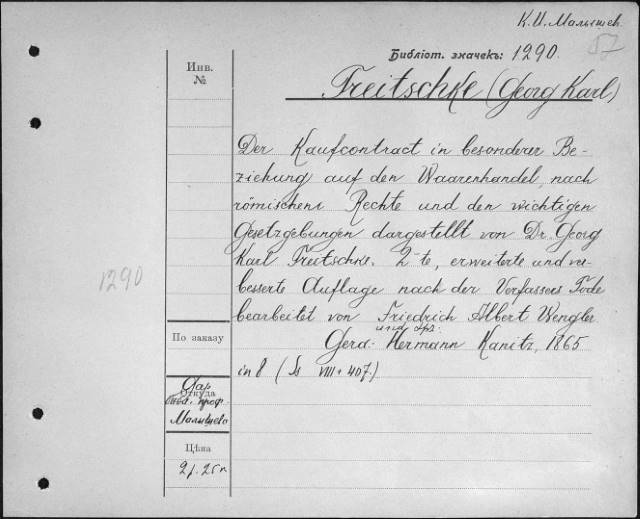 К. И. Малышев.
57
Библіот. значекъ: 1290.
Инв.
№
Treitschke (Georg Karl)
Der Kaufcontract in besonderer Be-
ziehung auf den Waarenhandel, nach
römischem Rechte und den wichtigen
Gesetzgebungen dargestellt von Dr. Georg
Karl Treitschke. 2-te, erweiterte und ver-
besserte Auflage nach der Verfassers Tode
1290
bearbeitet von Friedrich Albert Wengler
und Lpz.
По заказу
Gera. Hermann Kanitz, 1865
in 8 (Ss VIII + 407.)
Дар
Откуда
проф.
Малышева
Цѣна
2 р. 25 к